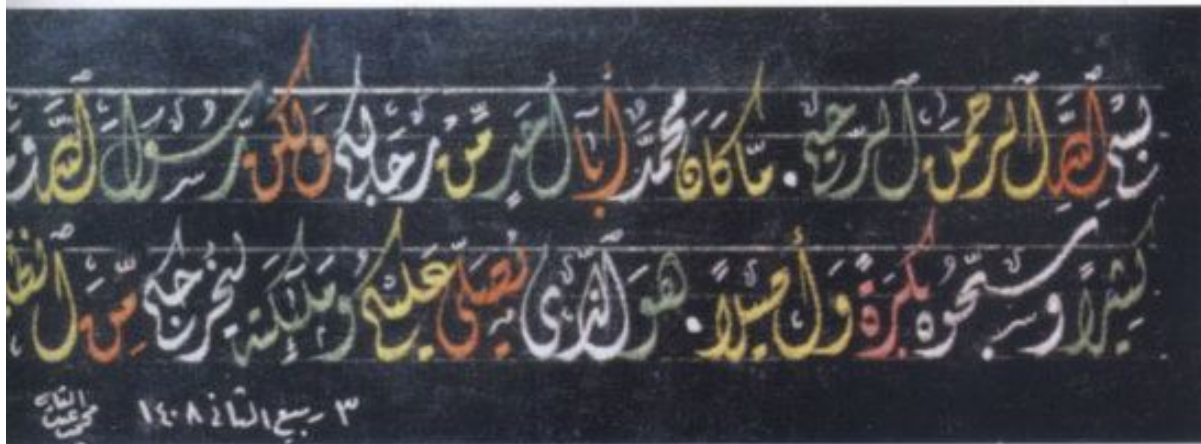 بِسْمِ ٱللَّهِ ٱلرَّحْمَنِ ٱلرَّحِيمِ . مَّا كَانَ مُحَمَّدٌ أَبَآ أَحَدٍ مِّن رِّجَالِكُمْ وَلَكِن رَّسُولَ ٱللَّهِ
كَثِيرًا وَسَبِّحُوهُ بُكْرَةً وَأَصِيلًا . هُوَ ٱلَّذِى يُصَلِّى عَلَيْكُمْ وَمَلَٰٓئِكَتُهُ لِيُخْرِجَكُم مِّنَ
٣ ربيع الثاني ١٤٠٨